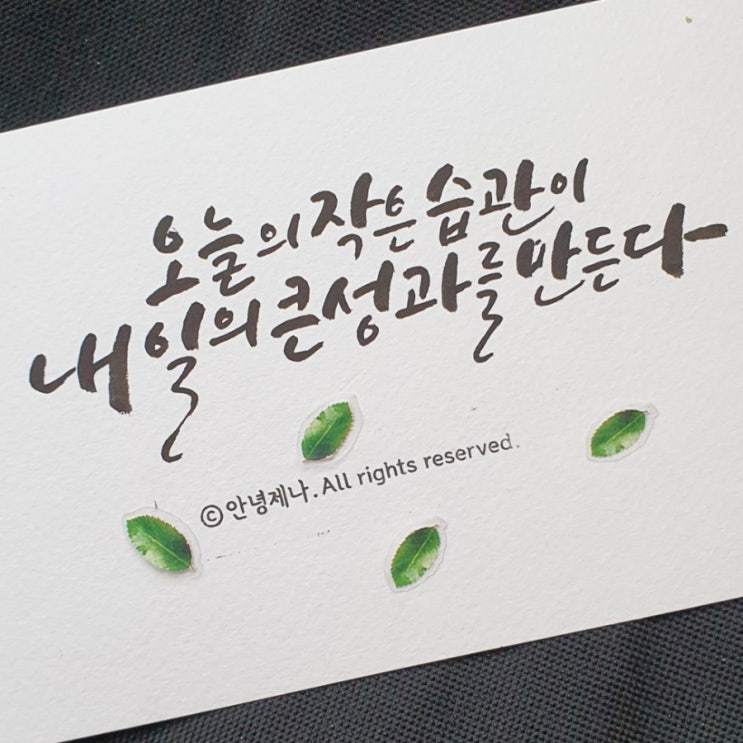 오늘의 작은 습관이
내일의 큰 성과를 만든다
©안녕제나.All rights reserved.